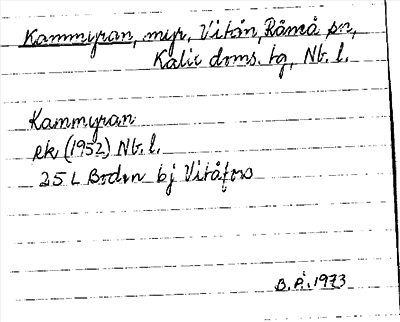 Kammyran, myr, Vitån, Råneå sn,
Kalix doms. tg, Nb. l.
Kammyran
ek (1952) Nb. l.
25 L Boden bj Vitåfors
B. Å. 1973